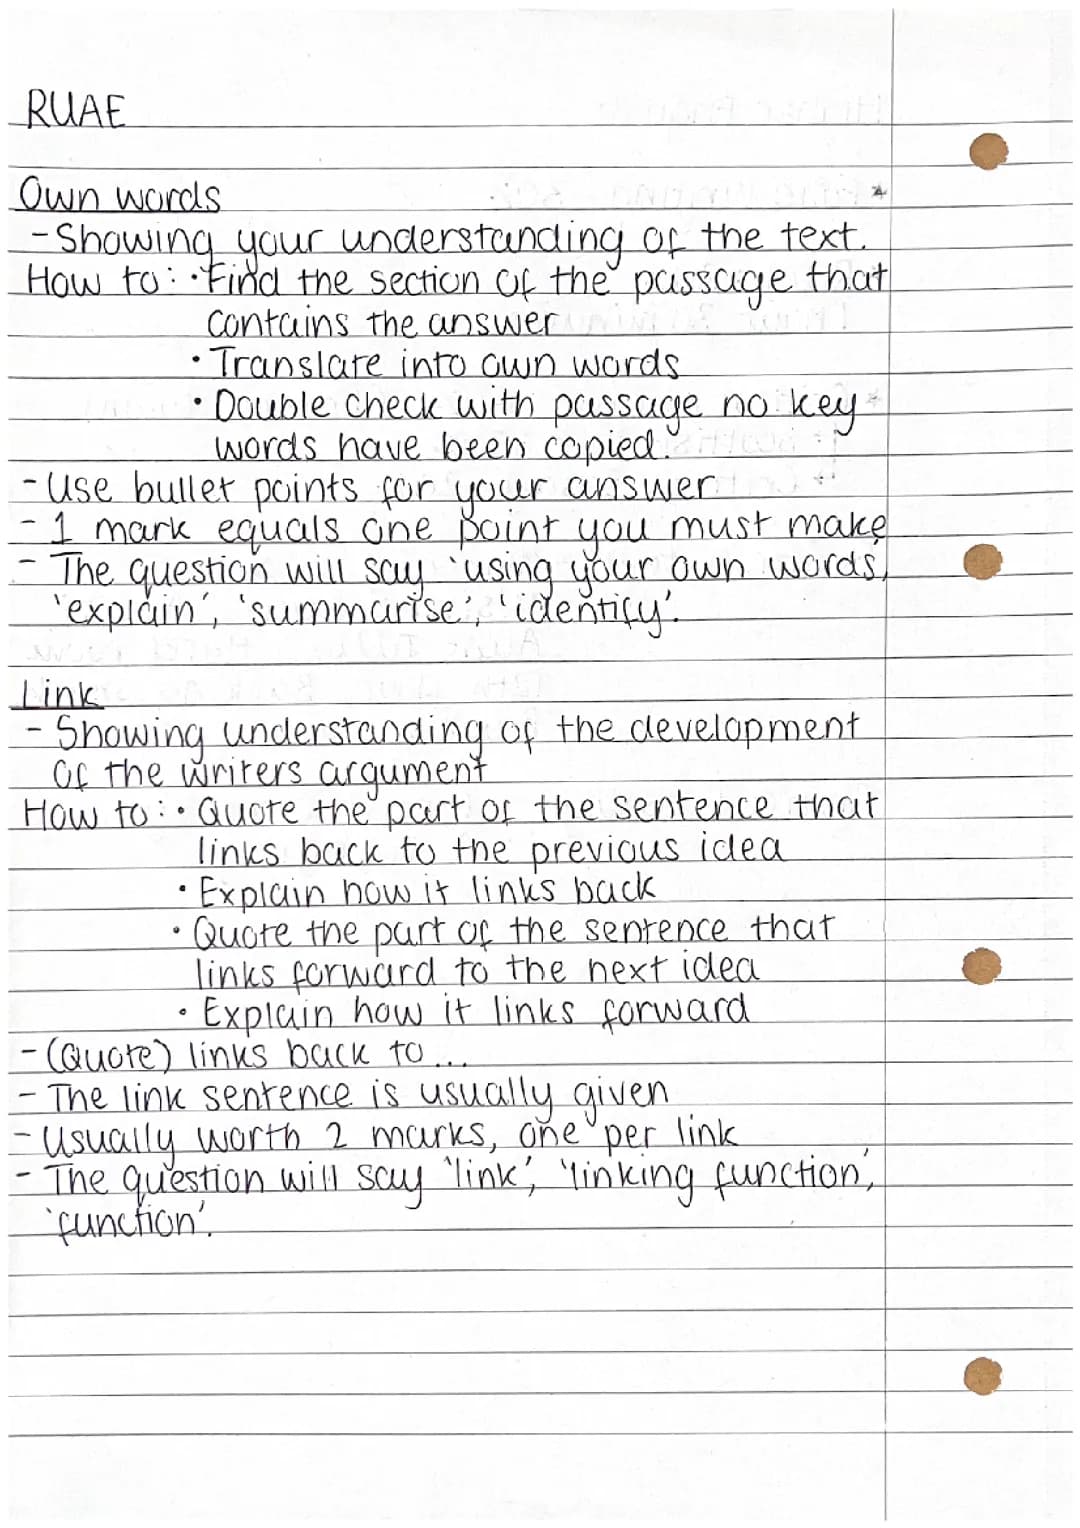 RUAE
Own words
- Showing your understanding of the text.
How to: • Find the section of the passage that
contains the answer
• Translate into own words
• Double check with passage no key
words have been copied.
- Use bullet points for your answer
- 1 mark equals one point you must make
- The question will say 'using your own words,
'explain', 'summarise', 'identify'.
Link
- Showing understanding of the development
of the writers argument
How to: • Quote the part of the sentence that
links back to the previous idea
• Explain how it links back
• Quote the part of the sentence that
links forward to the next idea
• Explain how it links forward
- (Quote) links back to ...
- The link sentence is usually given
- Usually worth 2 marks, one per link
- The question will say 'link', 'linking function',
'function'.